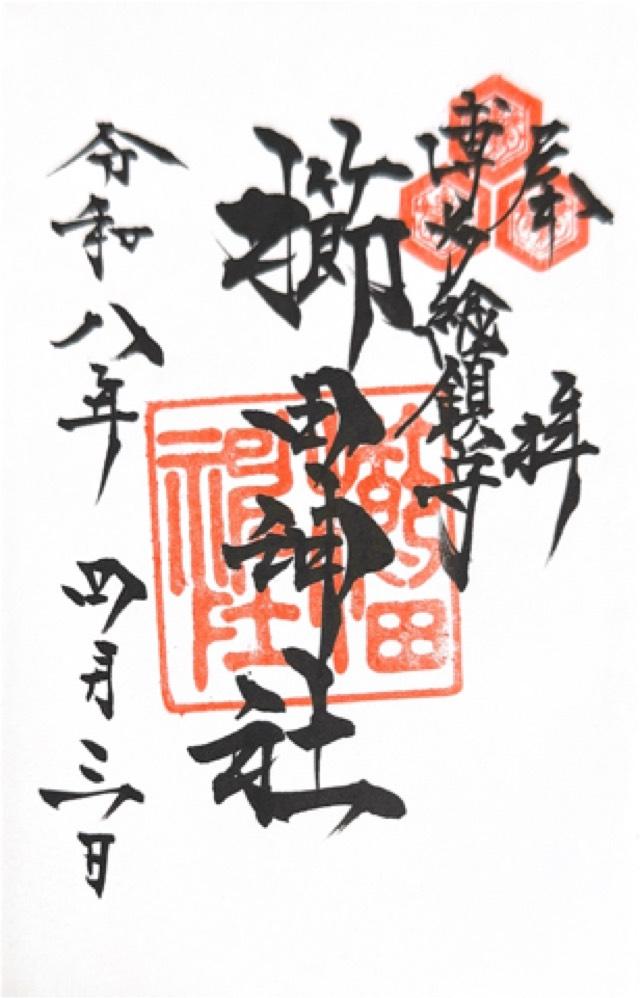 奉拝
博多総鎮守
櫛田神社
令和八年 四月三日